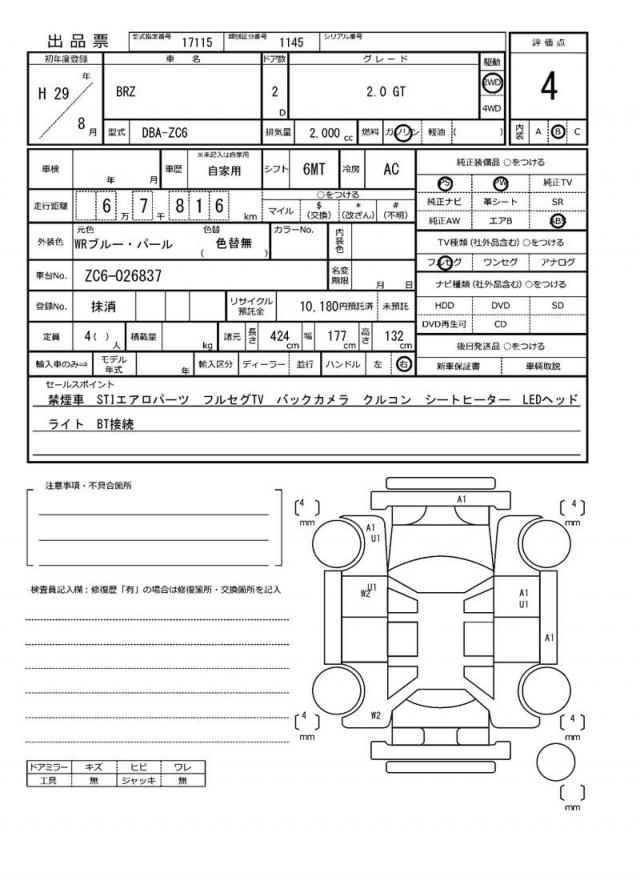 出品票 型式指定番号 17115 類別区分番号 1145 シリアル番号
評価点
4
内装 A B C
初年度登録 車名 ドア数 グレード 駆動
H 29 年 8 月 BRZ 2 D 2.0 GT 2WD 4WD
型式 DBA-ZC6 排気量 2,000 cc 燃料 ガソリン 軽油 ( )
車検 年 月 車歴 ※未記入は自家用 自家用 シフト 6MT 冷房 AC
走行距離 6 万 7 千 8 1 6 km ○をつける
マイル $ (交換) * (改ざん) # (不明)
外装色 元色 WRブルー・パール 色替 ( 色替無 ) カラーNo. 内装色
車台No. ZC6-026837 名変期限 月 日
登録No. 抹消 リサイクル預託金 10,180円預託済 未預託
定員 4 ( ) 人 積載量 kg 諸元 長さ 424 cm 幅 177 cm 高さ 132 cm
輸入車のみ⇒ モデル年式 年 輸入区分 ディーラー 並行 ハンドル 左 右
純正装備品 ○をつける
PS PW 純正TV
純正ナビ 革シート SR
純正AW エアB ABS
TV種類(社外品含む) ○をつける
フルセグ ワンセグ アナログ
ナビ種類(社外品含む) ○をつける
HDD DVD SD
DVD再生可 CD
後日発送品 ○をつける
新車保証書 車輌取説
セールスポイント
禁煙車 STIエアロパーツ フルセグTV バックカメラ クルコン シートヒーター LEDヘッド
ライト BT接続
注意事項・不具合箇所
検査員記入欄：修復歴「有」の場合は修復箇所・交換箇所を記入
ドアミラー キズ ヒビ ワレ
工具 無 ジャッキ 無
A1
4 mm
4 mm
A1
U1
U1
W2
A1
U1
A1
W2
4 mm
4 mm
mm